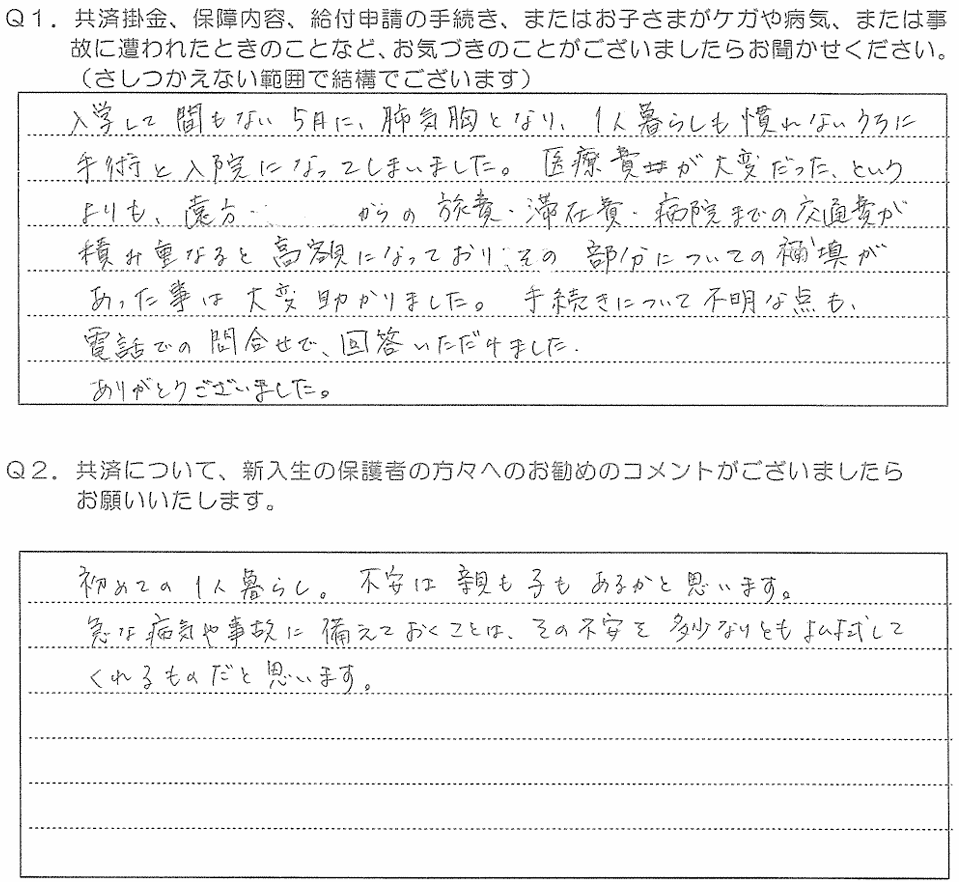 Q1. 共済掛金、保障内容、給付申請の手続き、またはお子さまがケガや病気、または事
故に遭われたときのことなど、お気づきのことがございましたらお聞かせください。
(さしつかえない範囲で結構でございます)
入学して間もない5月に、肺気胸となり、1人暮らしも慣れないうちに
手術と入院になってしまいました。医療費が大変だった、という
よりも、遠方 からの旅費・滞在費・病院までの交通費が
積み重なると高額になっており、その部分についての補填が
あった事は大変助かりました。手続きについて不明な点も、
電話での問合せで、回答いただけました.
ありがとうございました。
Q2. 共済について、新入生の保護者の方々へのお勧めのコメントがございましたら
お願いいたします。
初めての1人暮らし。不安は親も子もあるかと思います。
急な病気や事故に備えておくことは、その不安を多少なりとも して
くれるものだと思います。